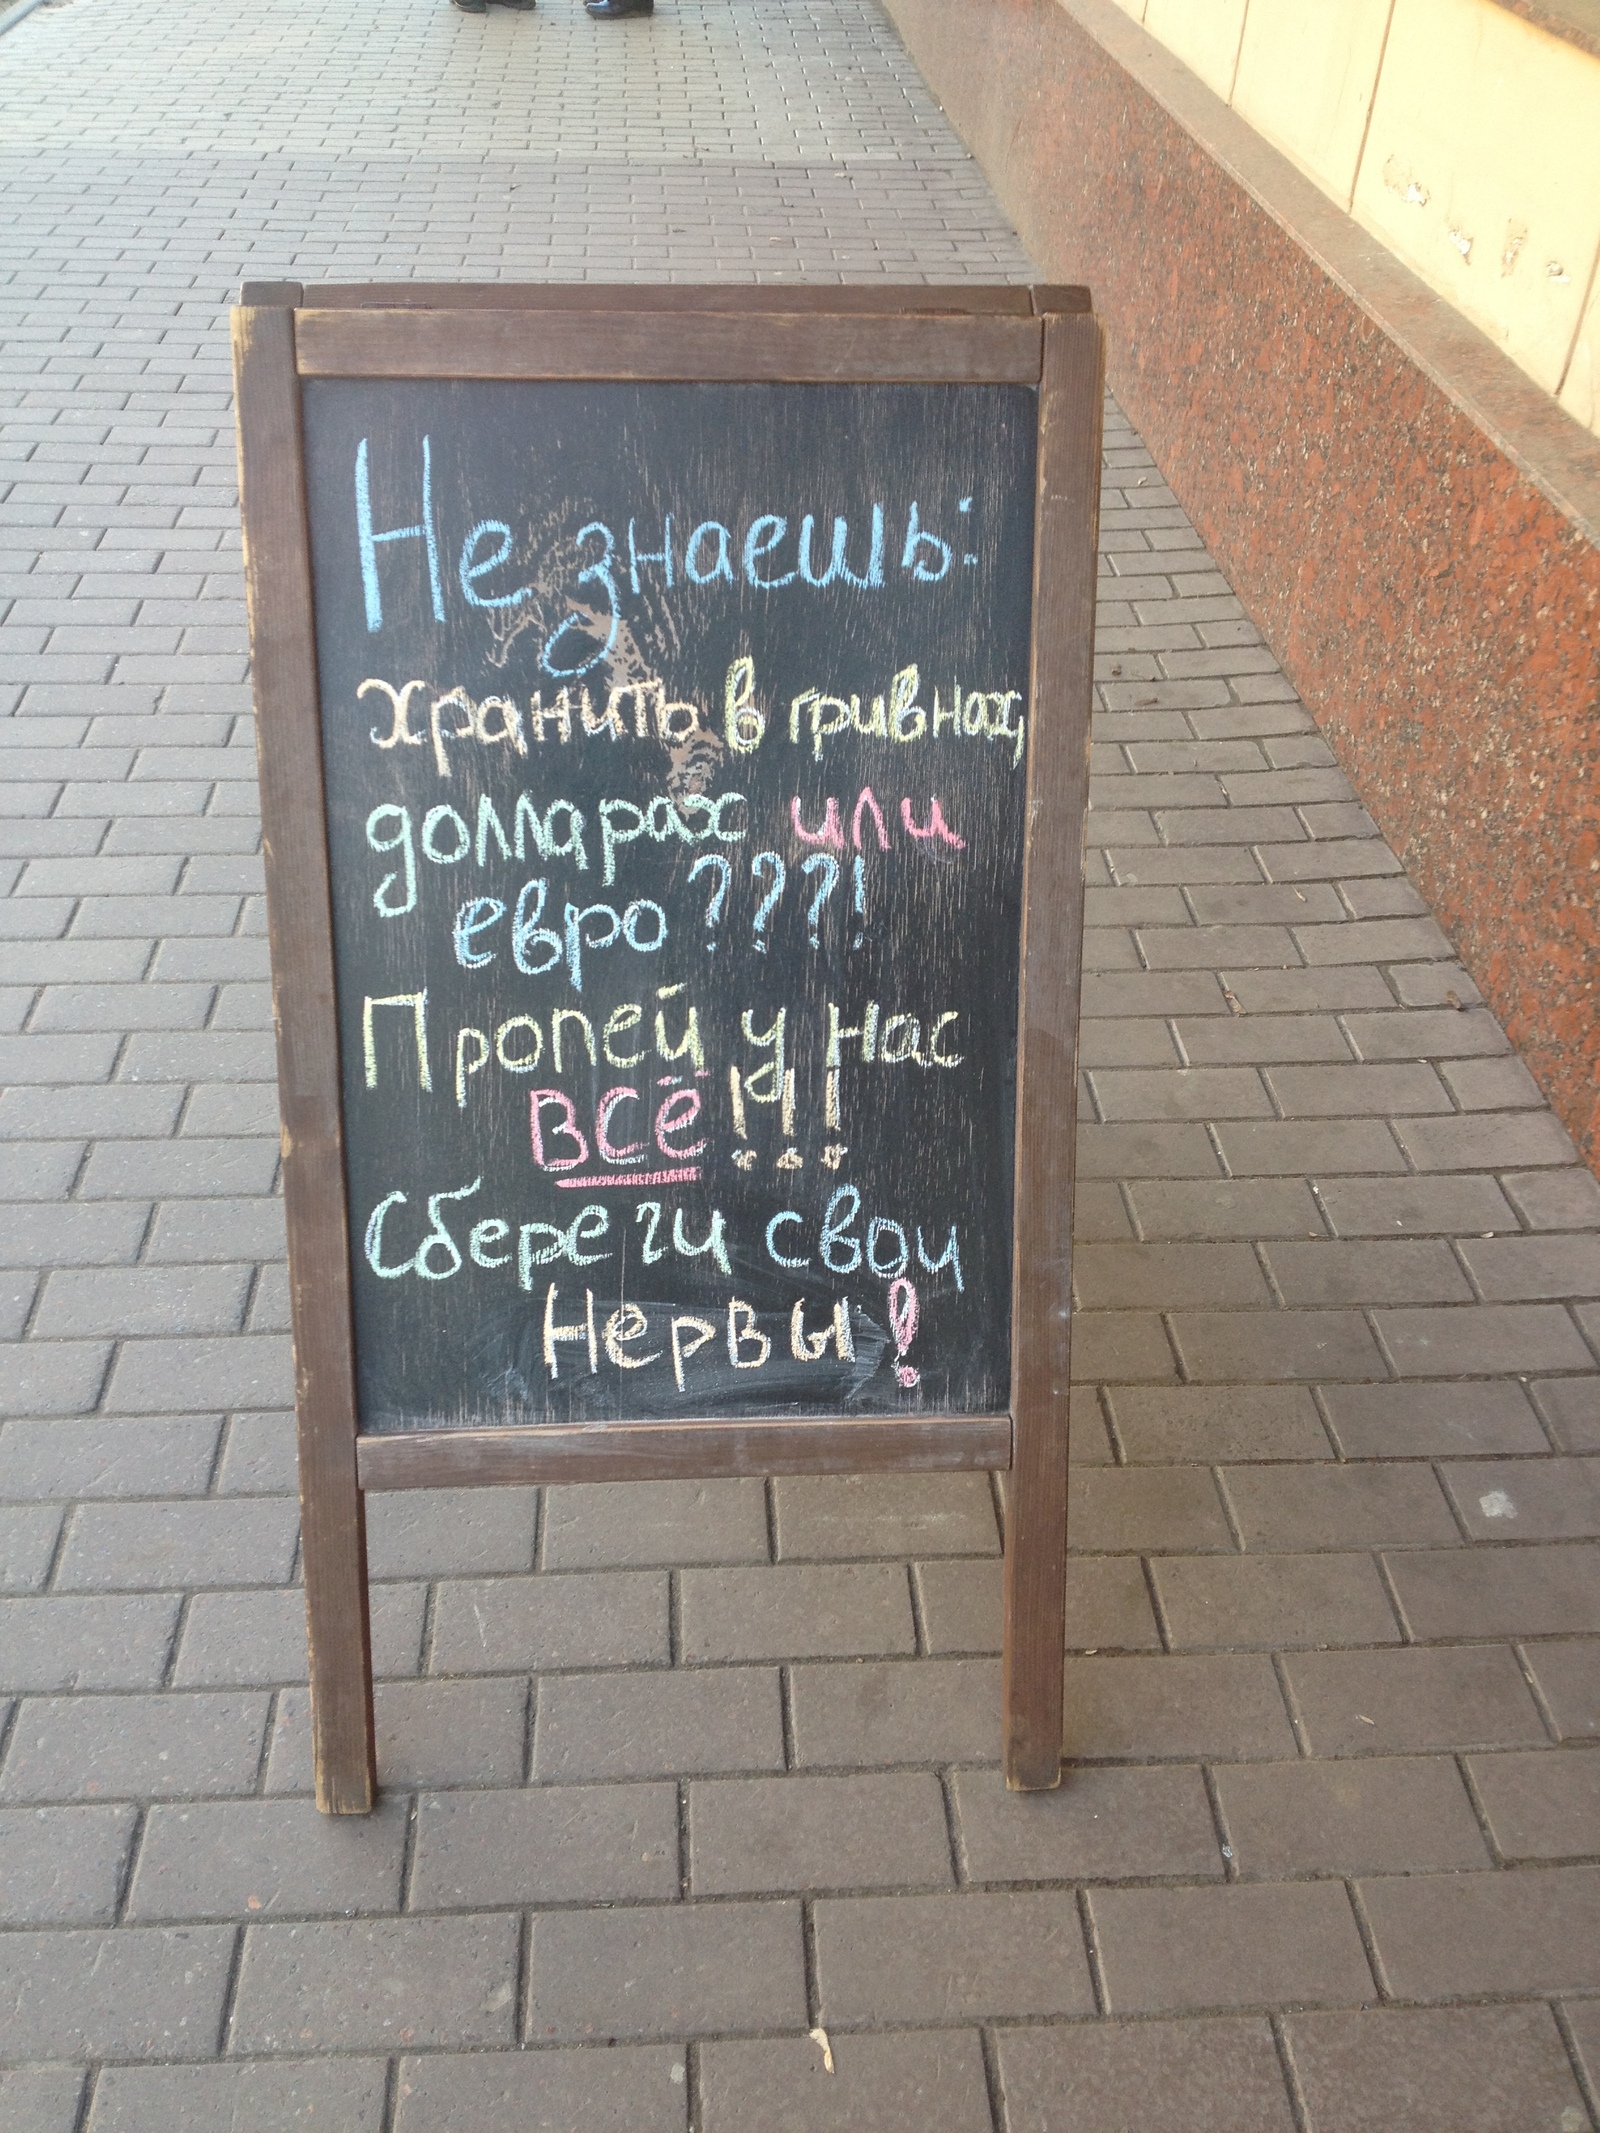 Не знаешь:
хранить в гривнах,
долларах или
евро ???!
Пропей у нас
ВСЁ!!!
Сбереги свои
Нервы!